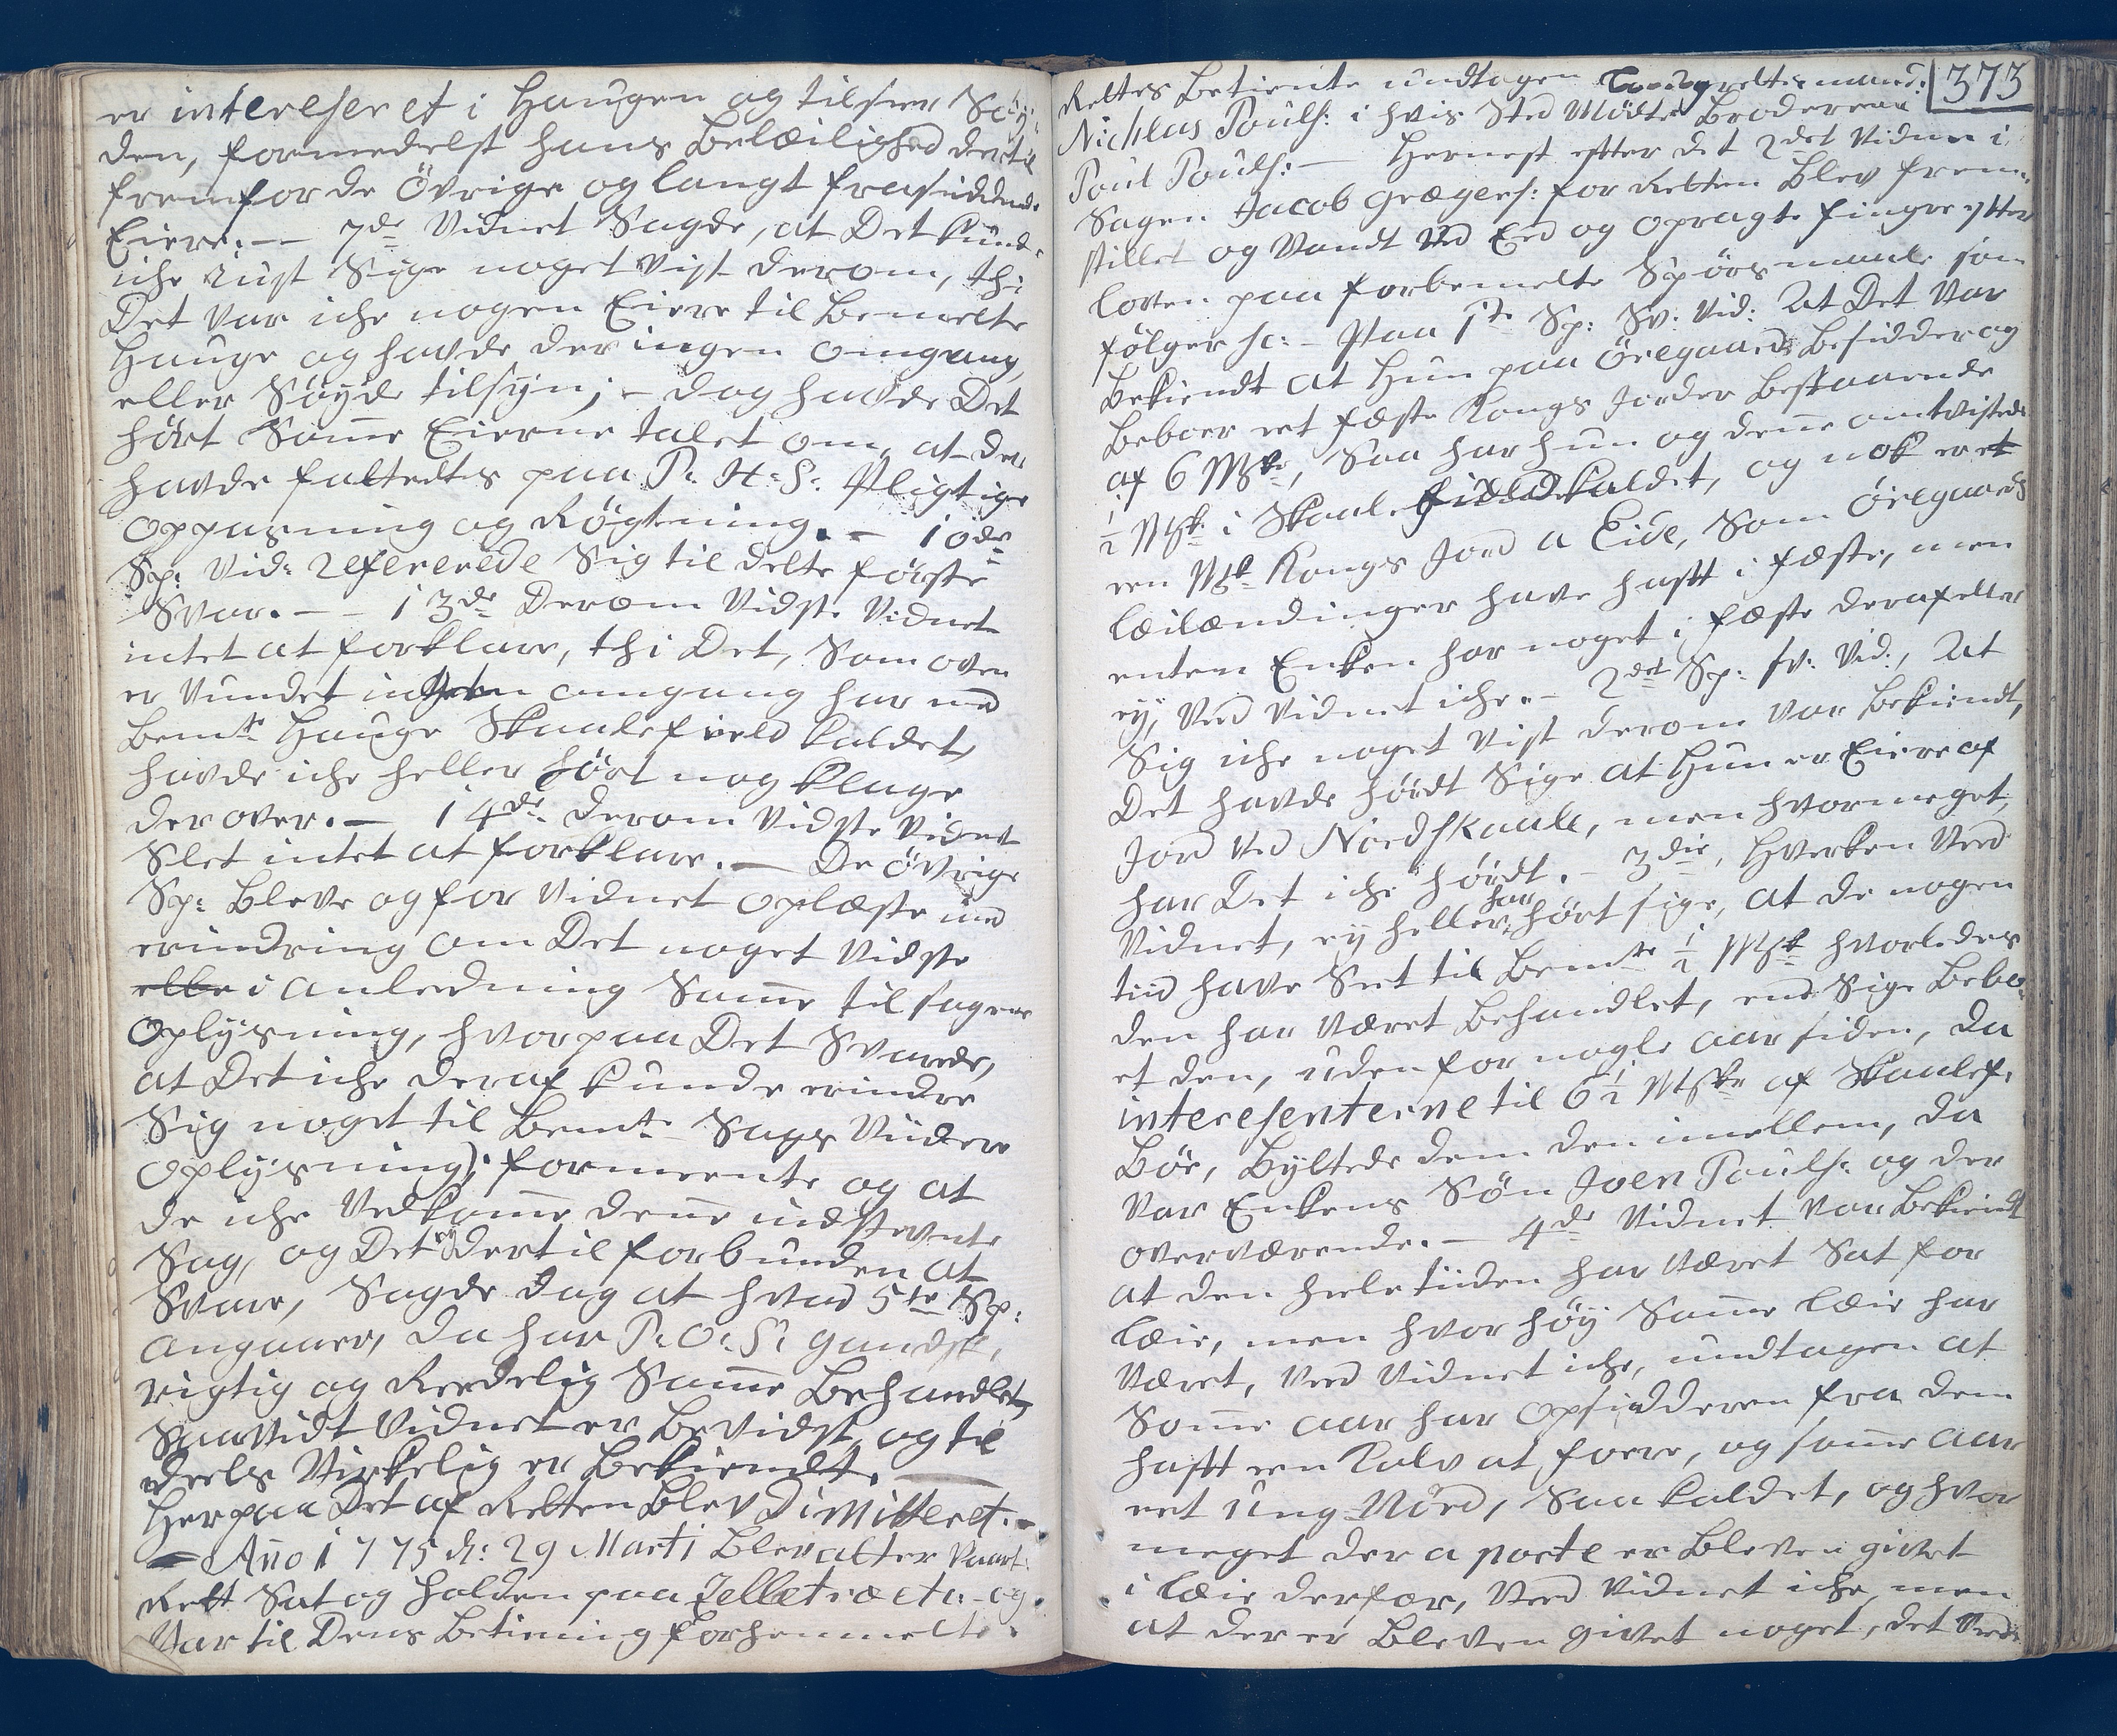 er intereseret i Haugen og tilseer Søy-
den, formedelst hans Belæilighed dertil
fremfor de Övrige og langt frasiddende
Eiere. — 7de Vidnet Sagde, at Det kunde
iche iust Sige noget vist derom, thi
Det var iche nogen Eiere til Bemelte
Hauge og havde der ingen omgang
eller Søyde tilsyn; – dog havde Det
hört Some Eierne talet om, at der
havde fattedtes paa P: H: S: Pligtige
oppasning og Røgtening. — 10de
Sp: Vid: Refererede Sig til dette förste
Svar. — 13de Derom Vidste Vidnet
intet at forklare, thi Det, Som oven
er Vundet ingen omgang har med
Bemte Hauge Skaalefield kaldet,
havde iche heller hört nog klage
derover. — 14de derom Vidste Vidnet
Slet intet at forklare. — De övrige
Sp: Bleve og for Vidnet oplæste med
erindring om Det noget Vidste
elle i anledning Same til sagens
Oplysning, hvorpaa Det Svarede,
at Det iche deraf kunde erindre
Sig noget til Bemte Sags Viidere
oplysning; formeente og at
de iche Vedkome dene indstevnte
Sag, og Det ey dertil forbunden at
Svare, Sagde dog at hvad 5te Sp:
angaaer, da har P: O: S: gandske
rigtig og Reedelig Same Behandlet,
Saavidt Vidnet er Bevidst, og til
deels Virkelig er Bekiendt.
Herpaa Det af Retten Blev Dimitteret. –
— Ano 1775 d: 29 Marti Blev atter Vaart:
Rett Sat og holden paa Zelletræ etc: – og
Var til Dens Betiening forhenmelte
373
Rettes Betiente undtagen Laugrettesmand:
Nichlas Pouls: i hvis Sted Mödte Broderen
Poul Pouls: — Hernest efter det 2det Vidne i
Sagen Jacob Grægers: for Retten Blev frem-
stillet og Vandt Ved Eed og opragte fingre efter
loven paa forbemelte Spörsmaale som
fölger sc: – Paa 1te Sp: Sv: Vid: At Det Var
Bekiendt at Hun paa Öregaard Besidder og
Beboer eet fæste Kongs Jorder Bestaaende
af 6 Mrk:, Saa har hun og dene omtvistede
½ Mrk: i Skaalefield kaldet, og nok er et
een Mrk Kongs Jord a Eide, Som Öregaards
læilændinger have haft i fæste, men
enten Enken har noget i fæste deraf eller
ey, Veed Vidnet iche. – 2det Sp: sv: Vid:, At
Sig iche noget Vist derom Var Bekiendt,
Det havde hördt Sige at Hun er Eiere af
Jord ved Nordskaale, men hvormeget,
har Det iche hördt. – 3die, Hverken Veed
Vidnet, ey heller har hört sige, at de nogen
tiid have Seet til Bemte ½ Mrk hvorledes
den har Været Behandlet, end Sige Bebo-
et den, uden for nogle aar siden, da
interesenterne til 6½ Mrk: af Skaalef.
Böe, Byttede dem den imellem, da
Var Enkens Sön Joen Pouls: og der
overværende. — 4de Vidnet Var Bekiendt
at den heele tiiden har Været Sat for
læie, men hvor höy Same læie har
Været, Veed Vidnet iche, undtagen at
Some aar har opsidderen fra dem
haft een Kalv at foere, og some aar
eet Ung Nöed, Saa kaldet, og hvor
meget der a parte er Bleven givet
i læie derfor, Veed Vidnet iche, men
at der er Bleven givet noget, det Veed